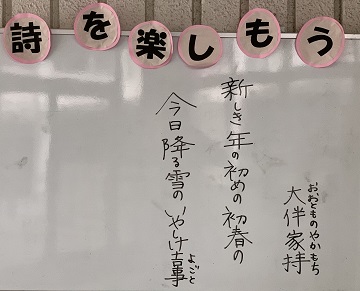 詩を楽しもう
大伴家持
おおとものやかもち
新しき年の初めの初春の
今日降る雪のいやしけ吉事
よごと